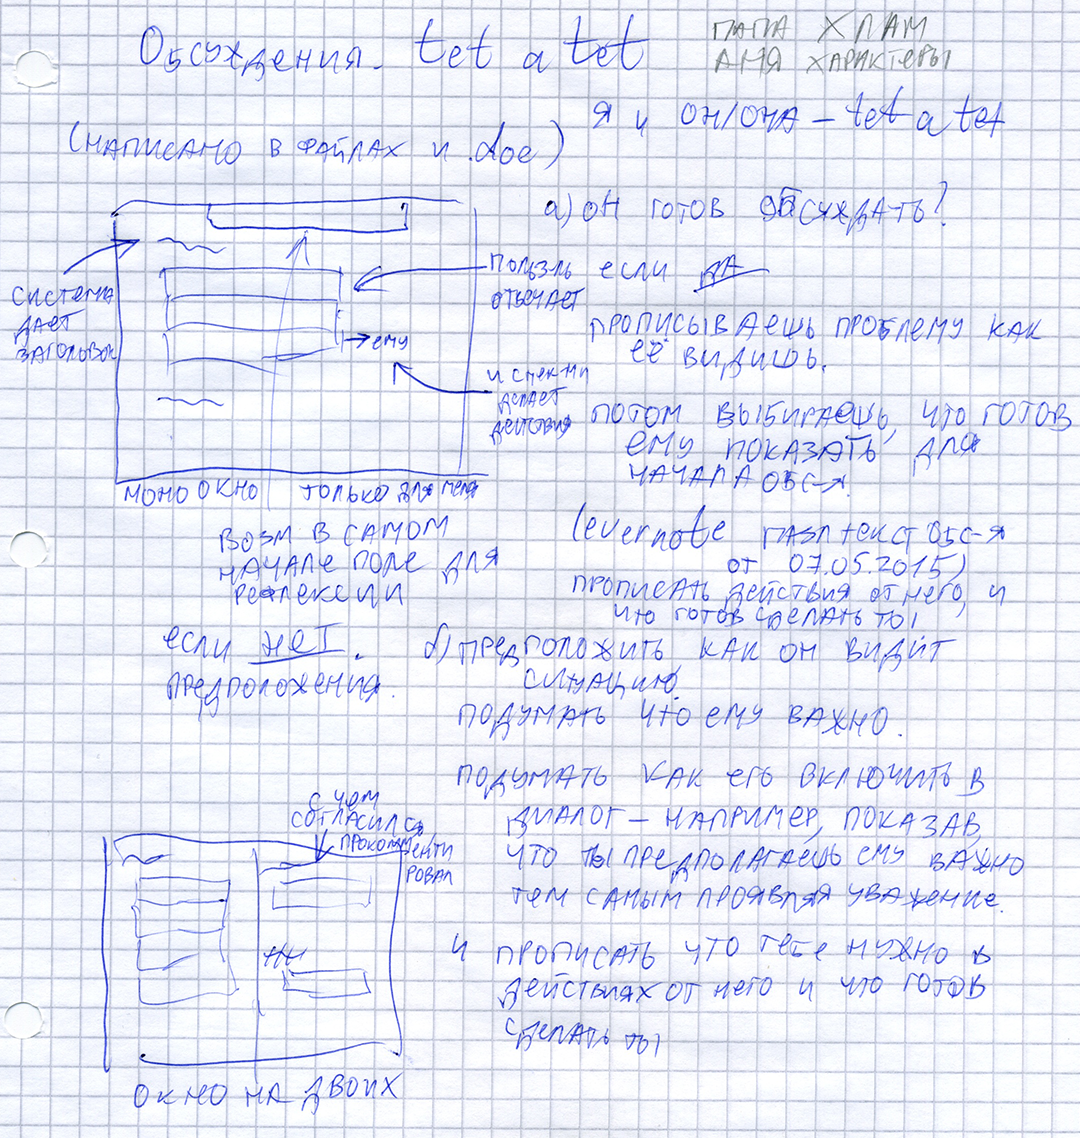 Обсуждения. tet a tet
ПАПА ХЛАМ
АНЯ ХАРАКТЕРЫ
Я и ОН/ОНА – tet a tet
(НАПИСАНО В ФАЙЛАХ И .doc)
а) ОН ГОТОВ ОБСУЖДАТЬ?
СИСТЕМА
ДАЕТ
ЗАГОЛОВОК
ПОЛЬЗ-ЛЬ
ОТВЕЧАЕТ
→ ему
и с ней
ДЕЛАЕТ
ДЕЙСТВИЯ
МОНО ОКНО ТОЛЬКО ДЛЯ МЕНЯ
если ДА
ПРОПИСЫВАЕШЬ ПРОБЛЕМУ КАК
ЕЁ ВИДИШЬ.
ПОТОМ ВЫБИРАЕШЬ, ЧТО ГОТОВ
ЕМУ ПОКАЗАТЬ ДЛЯ
НАЧАЛА ОБС-Я.
(evernote ТЕКСТ ОБС-Я
ОТ 07.05.2015)
ПРОПИСАТЬ ДЕЙСТВИЯ ОТ НЕГО, И
ЧТО ГОТОВ СДЕЛАТЬ ТЫ
ВОЗМ В САМОМ
НАЧАЛЕ ПОЛЕ ДЛЯ
РЕФЛЕКСИИ
если НЕТ.
ПРЕДПОЛОЖЕНИЯ.
б) ПРЕДПОЛОЖИТЬ КАК ОН ВИДИТ
СИТУАЦИЮ.
ПОДУМАТЬ ЧТО ЕМУ ВАЖНО.
ПОДУМАТЬ КАК ЕГО ВКЛЮЧИТЬ В
ДИАЛОГ – НАПРИМЕР, ПОКАЗАВ,
ЧТО ТЫ ПРЕДПОЛАГАЕШЬ ЕМУ ВАЖНО
ТЕМ САМЫМ ПРОЯВЛЯЯ УВАЖЕНИЕ.
И ПРОПИСАТЬ ЧТО ТЕБЕ НУЖНО В
ДЕЙСТВИЯХ ОТ НЕГО И ЧТО ГОТОВ
СДЕЛАТЬ ТЫ
С ЧЕМ
СОГЛАСИЛСЯ
ПРОКОММЕНТИ
РОВАЛ
ОКНО НА ДВОИХ